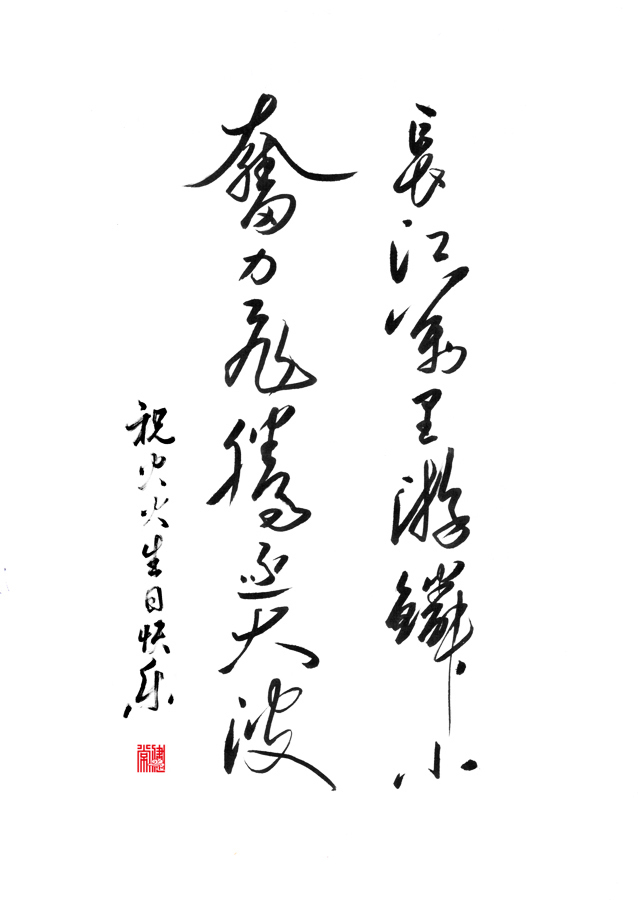 長江萬里游鱗小
奮力飛騰大波
祝火火生日快乐